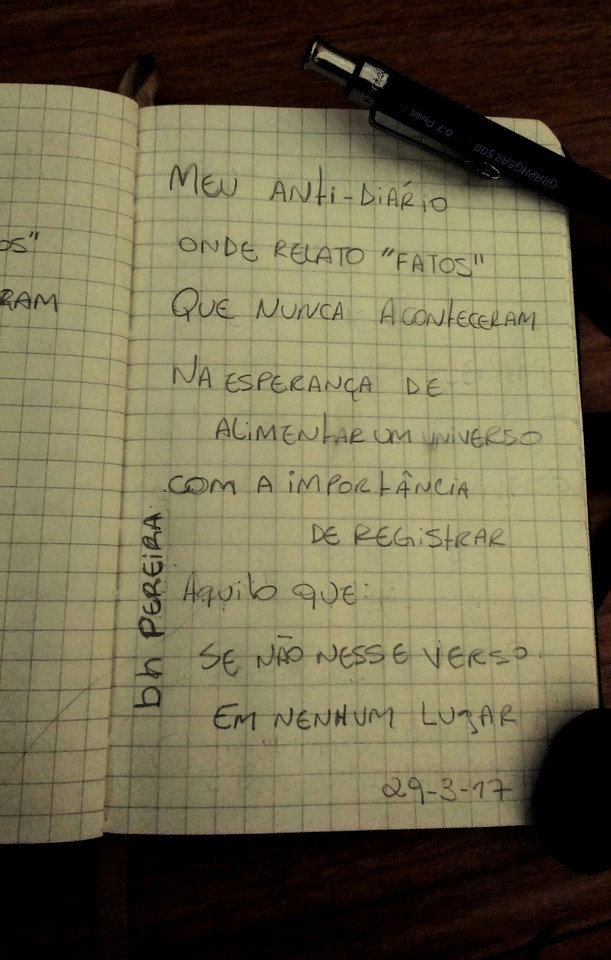 OS"
RAM
MEU ANTI-DIÁRIO
ONDE RELATO "FATOS"
QUE NUNCA ACONTECERAM
NA ESPERANÇA DE
ALIMENTAR UM UNIVERSO
COM A IMPORTÂNCIA
DE REGISTRAR
AQUILO QUE:
SE NÃO NESSE VERSO.
EM NENHUM LUGAR
29-3-17
bh PEREIRA
GRAPHGEAR 500 0.7 Pentel